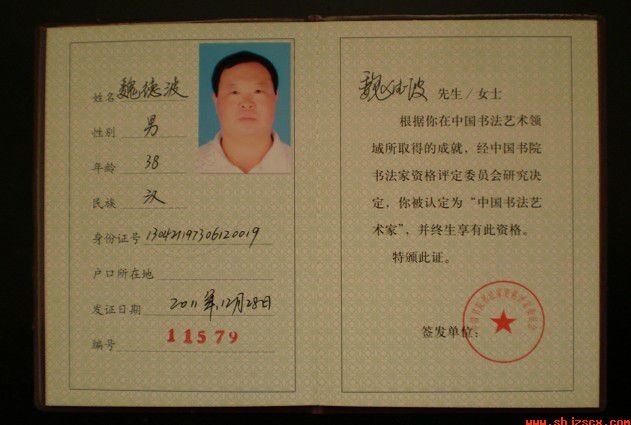 姓名 魏德波
性别 男
年龄 38
民族 汉
身份证号 130421197306120019
户口所在地
发证日期 2011年12月28日
编号 11579
魏德波 先生/女士
根据你在中国书法艺术领
域所取得的成就，经中国书院
书法家资格评定委员会研究决
定，你被认定为“中国书法艺
术家”，并终生享有此资格。
特颁此证。
签发单位：
www.shjzscx.com